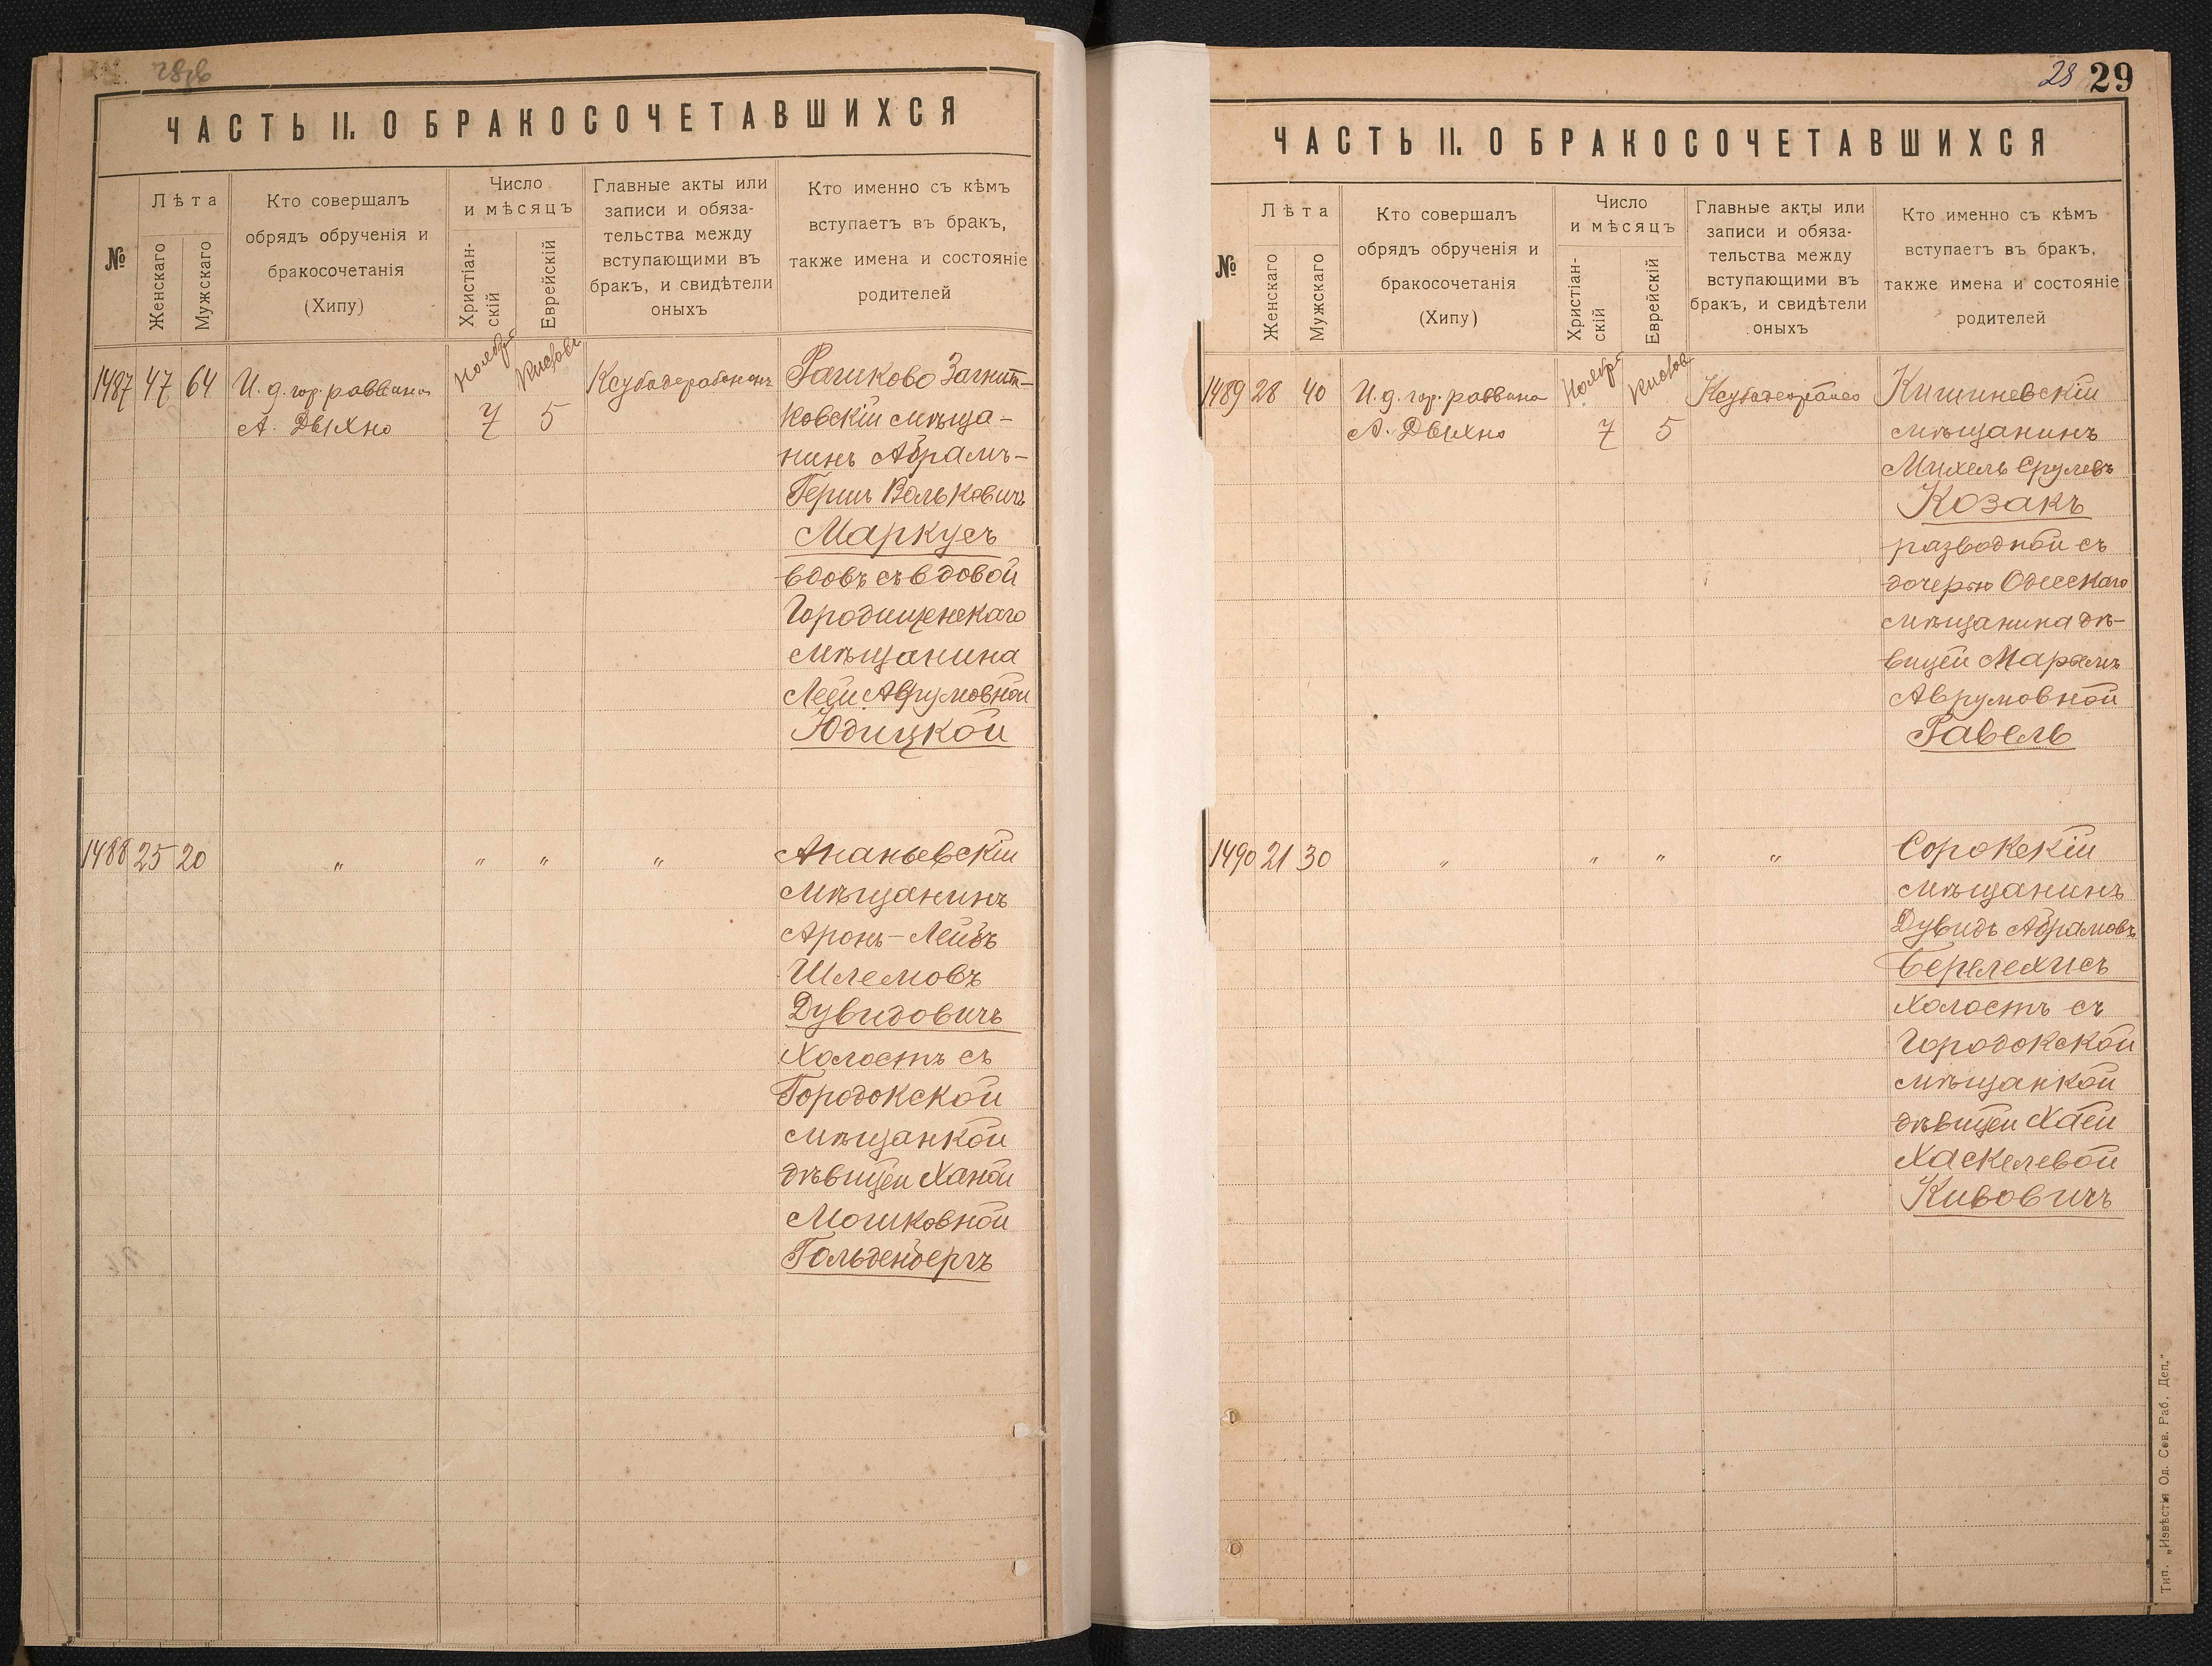 28об
ЧАСТЬ II. О БРАКОСОЧЕТАВШИХСЯ
№
Лѣта
Женскаго
Мужскаго
Кто совершалъ
обрядъ обрученія и
бракосочетанія
(Хипу)
Число
и мѣсяцъ
Христіан-
скій
Еврейскій
Главные акты или
записи и обяза-
тельства между
вступающими въ
бракъ, и свидѣтели
оныхъ
Кто именно съ кѣмъ
вступаетъ въ бракъ,
также имена и состояніе
родителей
1487 47 64 И. д. гор. раввина Ноября Кислова Рашково Загнит-
А. Дыхно 7 5 ковскій мѣща-
нинъ Абрамъ-
Гершъ Вольковичъ
Маркусъ
вдовъ съ вдовой
Городищенскаго
мѣщанина
Леей Аврумовной
Юдицкой
1488 25 20 " " " " Ананьевскій
мѣщанинъ
Аронъ-Лейбъ
Шлемовъ
Дувидовичъ
холостъ съ
Городокской
мѣщанкой
дѣвицей Ханой
Мошковной
Гольденбергъ
28 29
ЧАСТЬ II. О БРАКОСОЧЕТАВШИХСЯ
№
Лѣта
Женскаго
Мужскаго
Кто совершалъ
обрядъ обрученія и
бракосочетанія
(Хипу)
Число
и мѣсяцъ
Христіан-
скій
Еврейскій
Главные акты или
записи и обяза-
тельства между
вступающими въ
бракъ, и свидѣтели
оныхъ
Кто именно съ кѣмъ
вступаетъ въ бракъ,
также имена и состояніе
родителей
1489 28 40 И. д. гор. раввина Ноября Кислова Кишиневскій
А. Дыхно 7 5 мѣщанинъ
Михель Срулевъ
Козакъ
разводной съ
дочерью Одесскаго
мѣщанина дѣ-
вицей Марьемъ
Аврумовной
Равель
1490 21 30 " " " " Сорокскій
мѣщанинъ
Дувидъ Абрамовъ
Берелехисъ
холостъ съ
Городокской
мѣщанкой
дѣвицей Хаей
Хаскелевой
Кивовичъ
Тип. „Извѣстія Од. Сов. Раб. Деп."